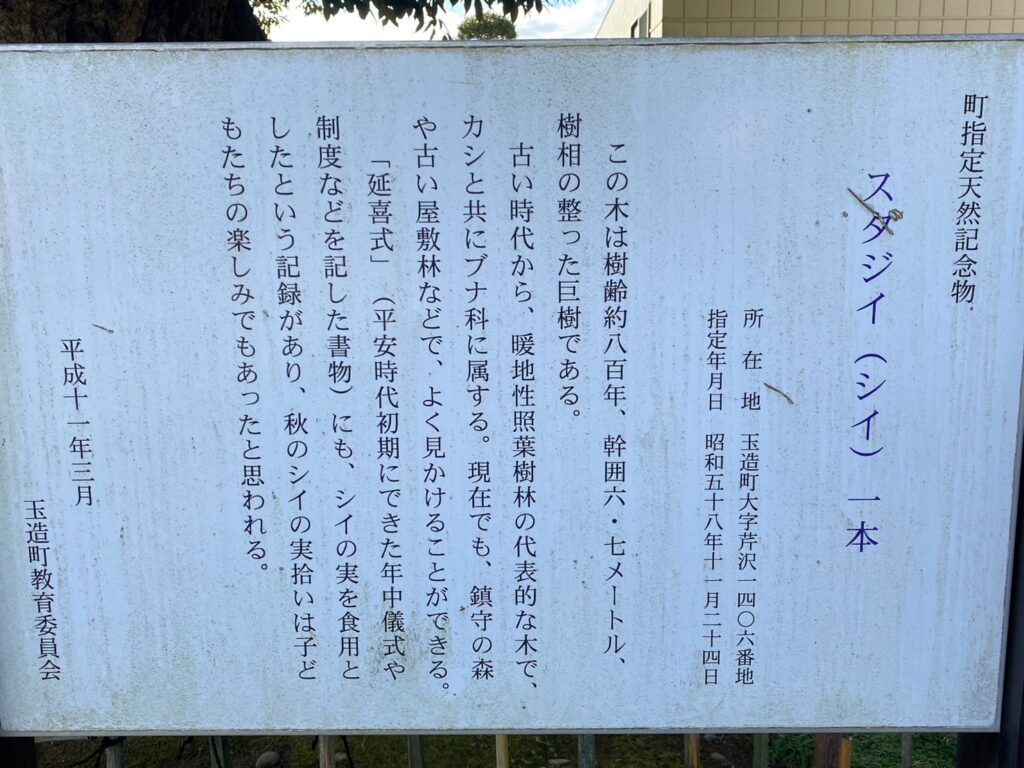 町指定天然記念物
スダジイ（シイ）一本
所在地 玉造町大字芹沢一四〇六番地
指定年月日 昭和五十八年十一月二十四日
この木は樹齢約八百年、幹囲六・七メートル、
樹相の整った巨樹である。
古い時代から、暖地性照葉樹林の代表的な木で、
カシと共にブナ科に属する。現在でも、鎮守の森
や古い屋敷林などで、よく見かけることができる。
「延喜式」（平安時代初期にできた年中儀式や
制度などを記した書物）にも、シイの実を食用と
したという記録があり、秋のシイの実拾いは子ど
もたちの楽しみでもあったと思われる。
平成十一年三月
玉造町教育委員会